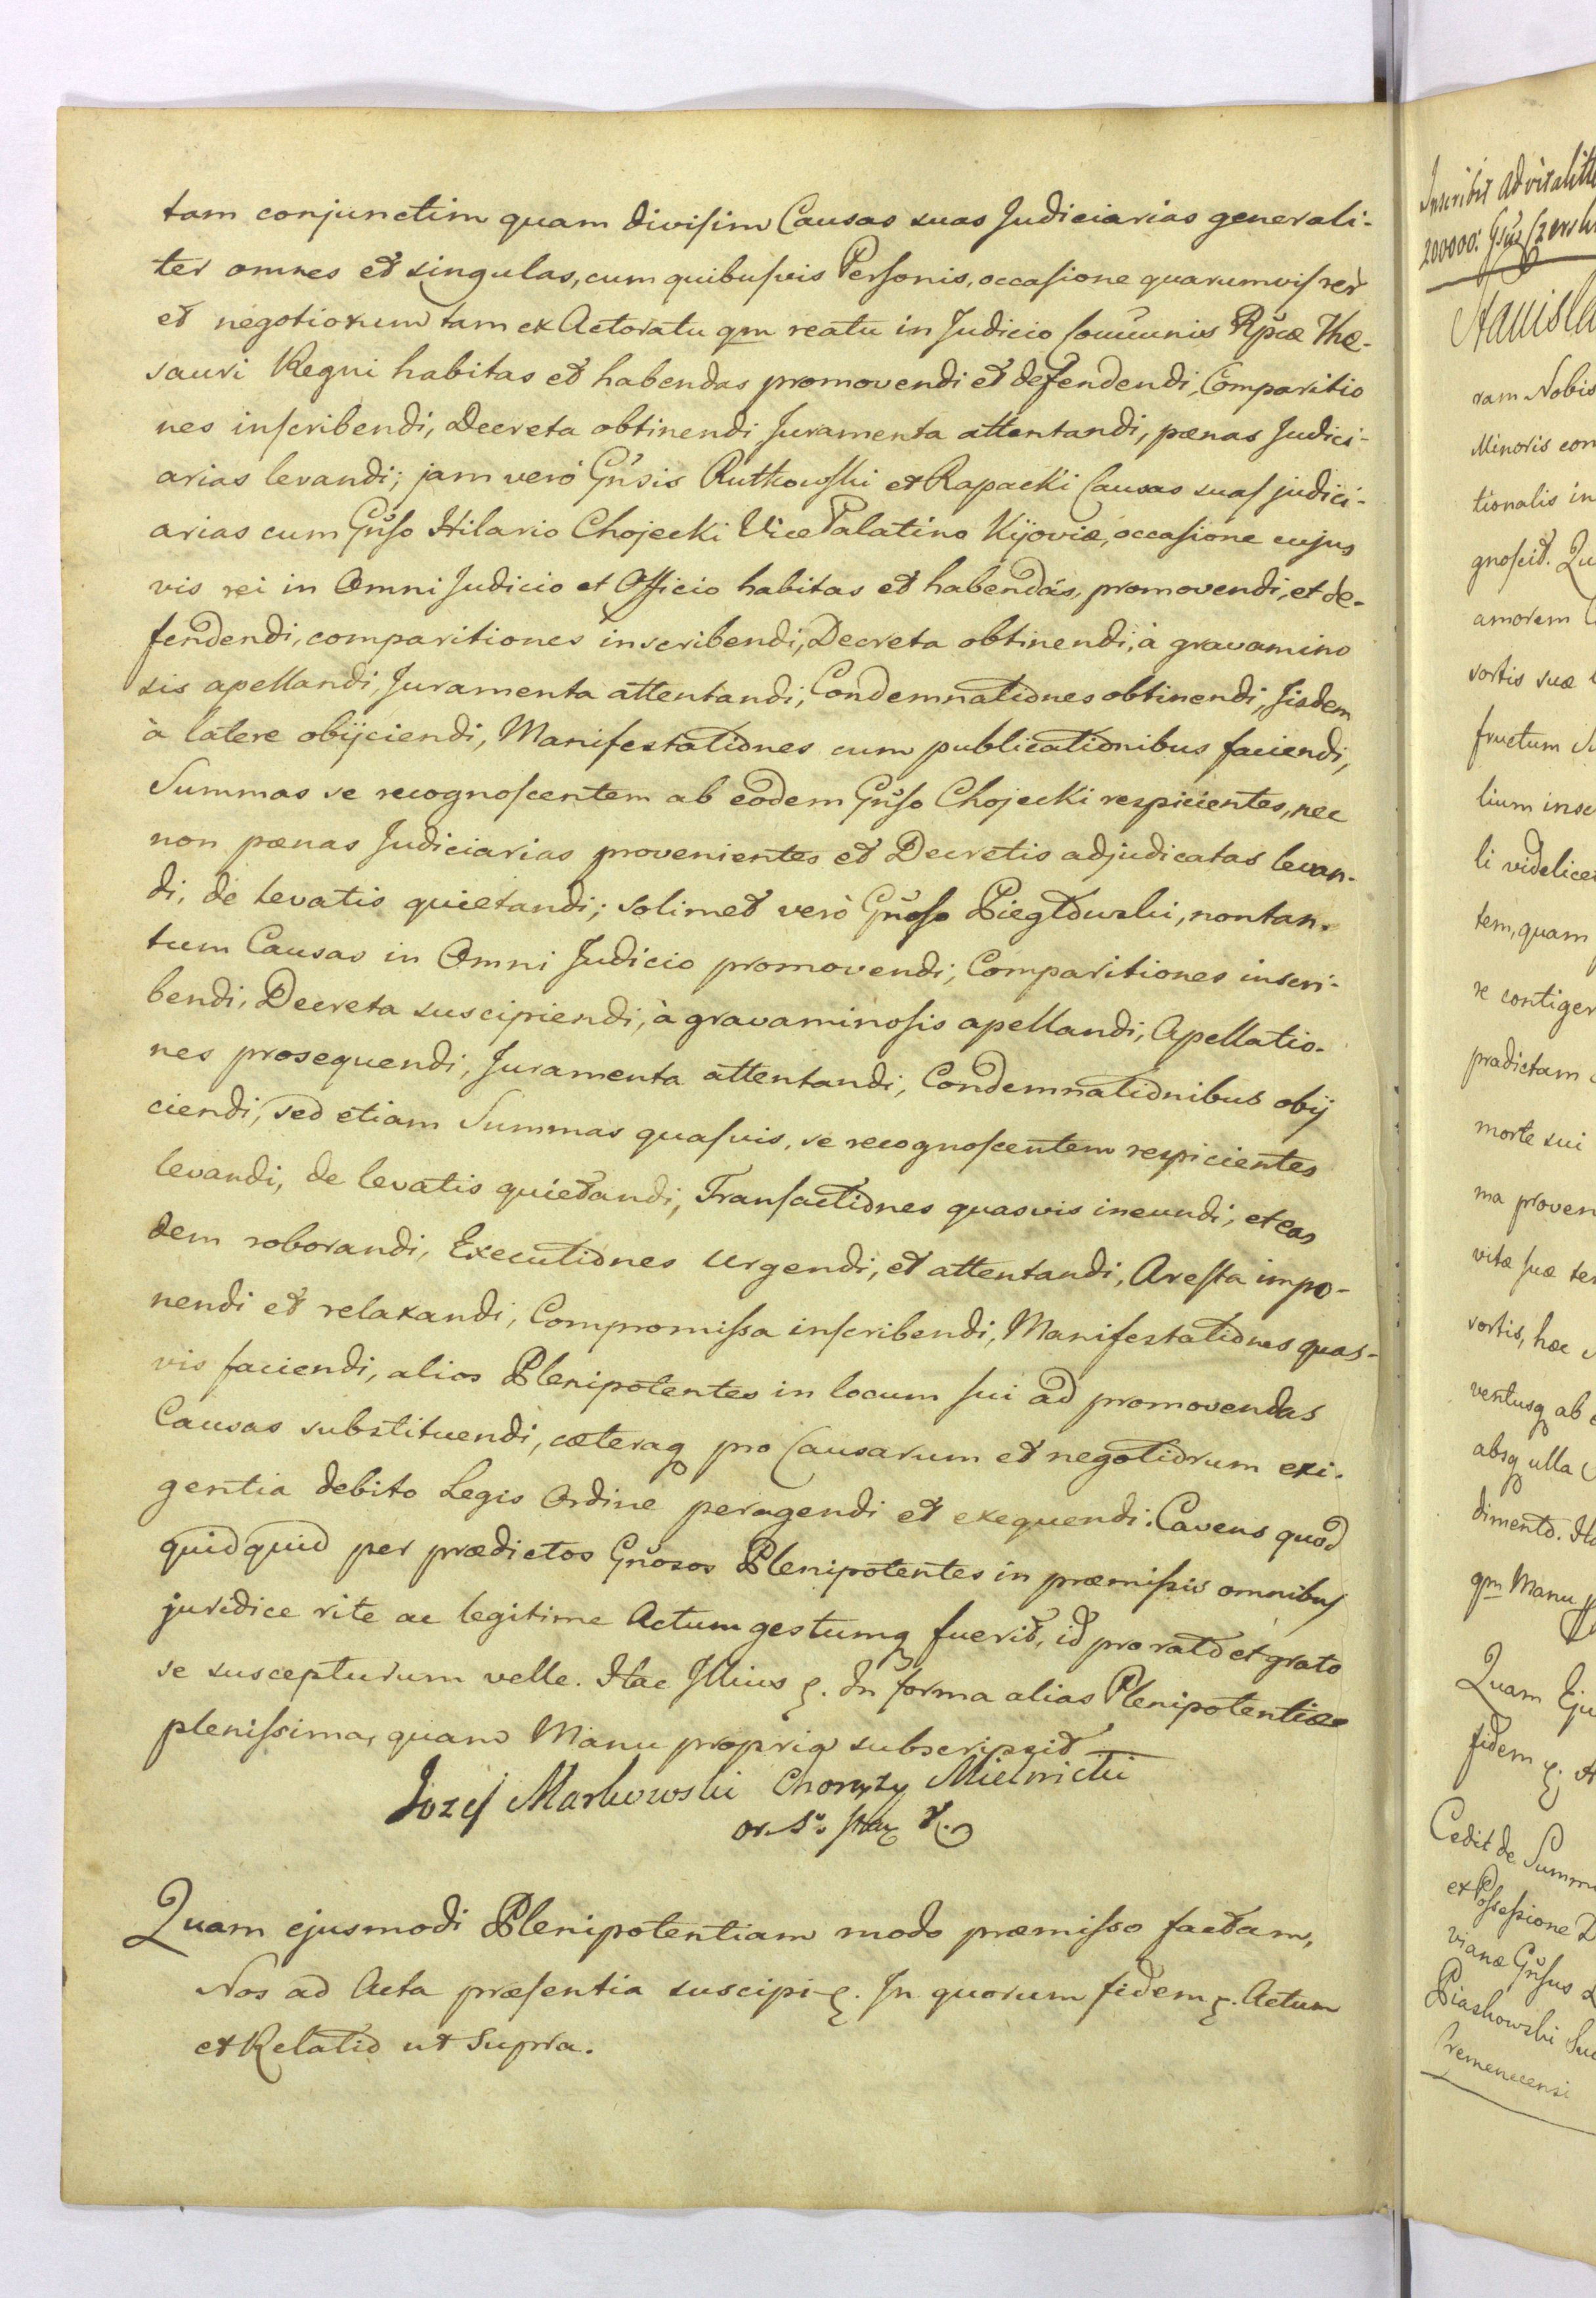 tam conjunctim quam diviſim Causas suas Judiciarias generali-
ter omnes et singulas, cum quibuſvis Perſonis, occaſione quarumviſ rer
et negotiorum tam ex Actoratu qm reatu in Judicio Communis Rpcæ The-
sauri Regni habitas et habendas promovendi et defendendi, Comparitio
nes inſcribendi, Decreta obtinendi Juramenta attentandi, pænas Judici-
arias levandi; jam verò Gnsis Rutkowſki et Rapacki Causas suaſ judici-
arias cum Gnſo Hilario Chojecki Vice Palatino Kijoviæ, occaſione cujus
vis rei in Omni Judicio et Officio habitas et habendas, promovendi, et de-
fendendi, comparitiones inscribendi, Decreta obtinendi, à gravamino
sis apellandi, Juramenta attentandi, Condemnationes obtinendi, Iisdem
à latere obijciendi, Manifestationes cum publicationibus faciendi,
Summas se recognoſcentem ab eodem Gnſo Chojecki respicientes, nec
non pænas Judiciarias provenientes et Decretis adjudicatas levan-
di, de levatis quietandi; solimet verò Gnoſo Piegłowski, nontan-
tum Causas in Omni Judicio promovendi, Comparitiones inscri-
bendi, Decreta suscipiendi, à gravaminoſis apellandi, Apellatio-
nes prosequendi, Juramenta attentandi, Condemnationibus obij
ciendi, sed etiam Summas quaſvis, se recognoſcentem respicientes
levandi, de levatis quietandi, Tranſactiones quasvis ineundi, et eas
dem roborandi, Executiones urgendi, et attentandi, Areſta impo-
nendi et relaxandi, Compromiſsa inſcribendi, Manifestationes quas-
vis faciendi, alios Plenipotentes in locum ſui ad promovendas
Causas substituendi, cæteraq pro Causarum et negotiorum exi-
gentia debito Legis Ordine peragendi et exequendi. Cavens quod
quidquid per prædictos Gnosos Plenipotentes in præmiſsis omnibuſ
juridice rite ac legitime Actum gestumq fuerit, id pro rato et grato
se suscepturum velle. Hac Illius ξ. In forma alias Plenipotentiæ
pleniſsima, quam Manu propria subscripsit
Jozef Markowski Chorąży Mielnicki
Quam ejusmodi Plenipotentiam modo præmiſso factam,
Nos ad Acta præſentia suscipi ξ. In quorum fidem ξ. Actum
et Relatio ut Supra.
Inscribit Advitalit
200000:
Stanisla
ram Nobis
Minoris con
tionalis in
gnoſcit. Qu
amorem
sortis suæ
fructum
lium insc
li videlicet
tem, quam
re contiger
prædictam
morte sui
ma proven
vitæ ſuæ te
sortis, hac
ventusq ab
absq ulla
dimento. Ha
qm Manu
Quam Eju
fidem ξ.
Cedit de Summ
ex Poſseſsione
vianæ Gnſus
Piaskowski
Cremenecensi